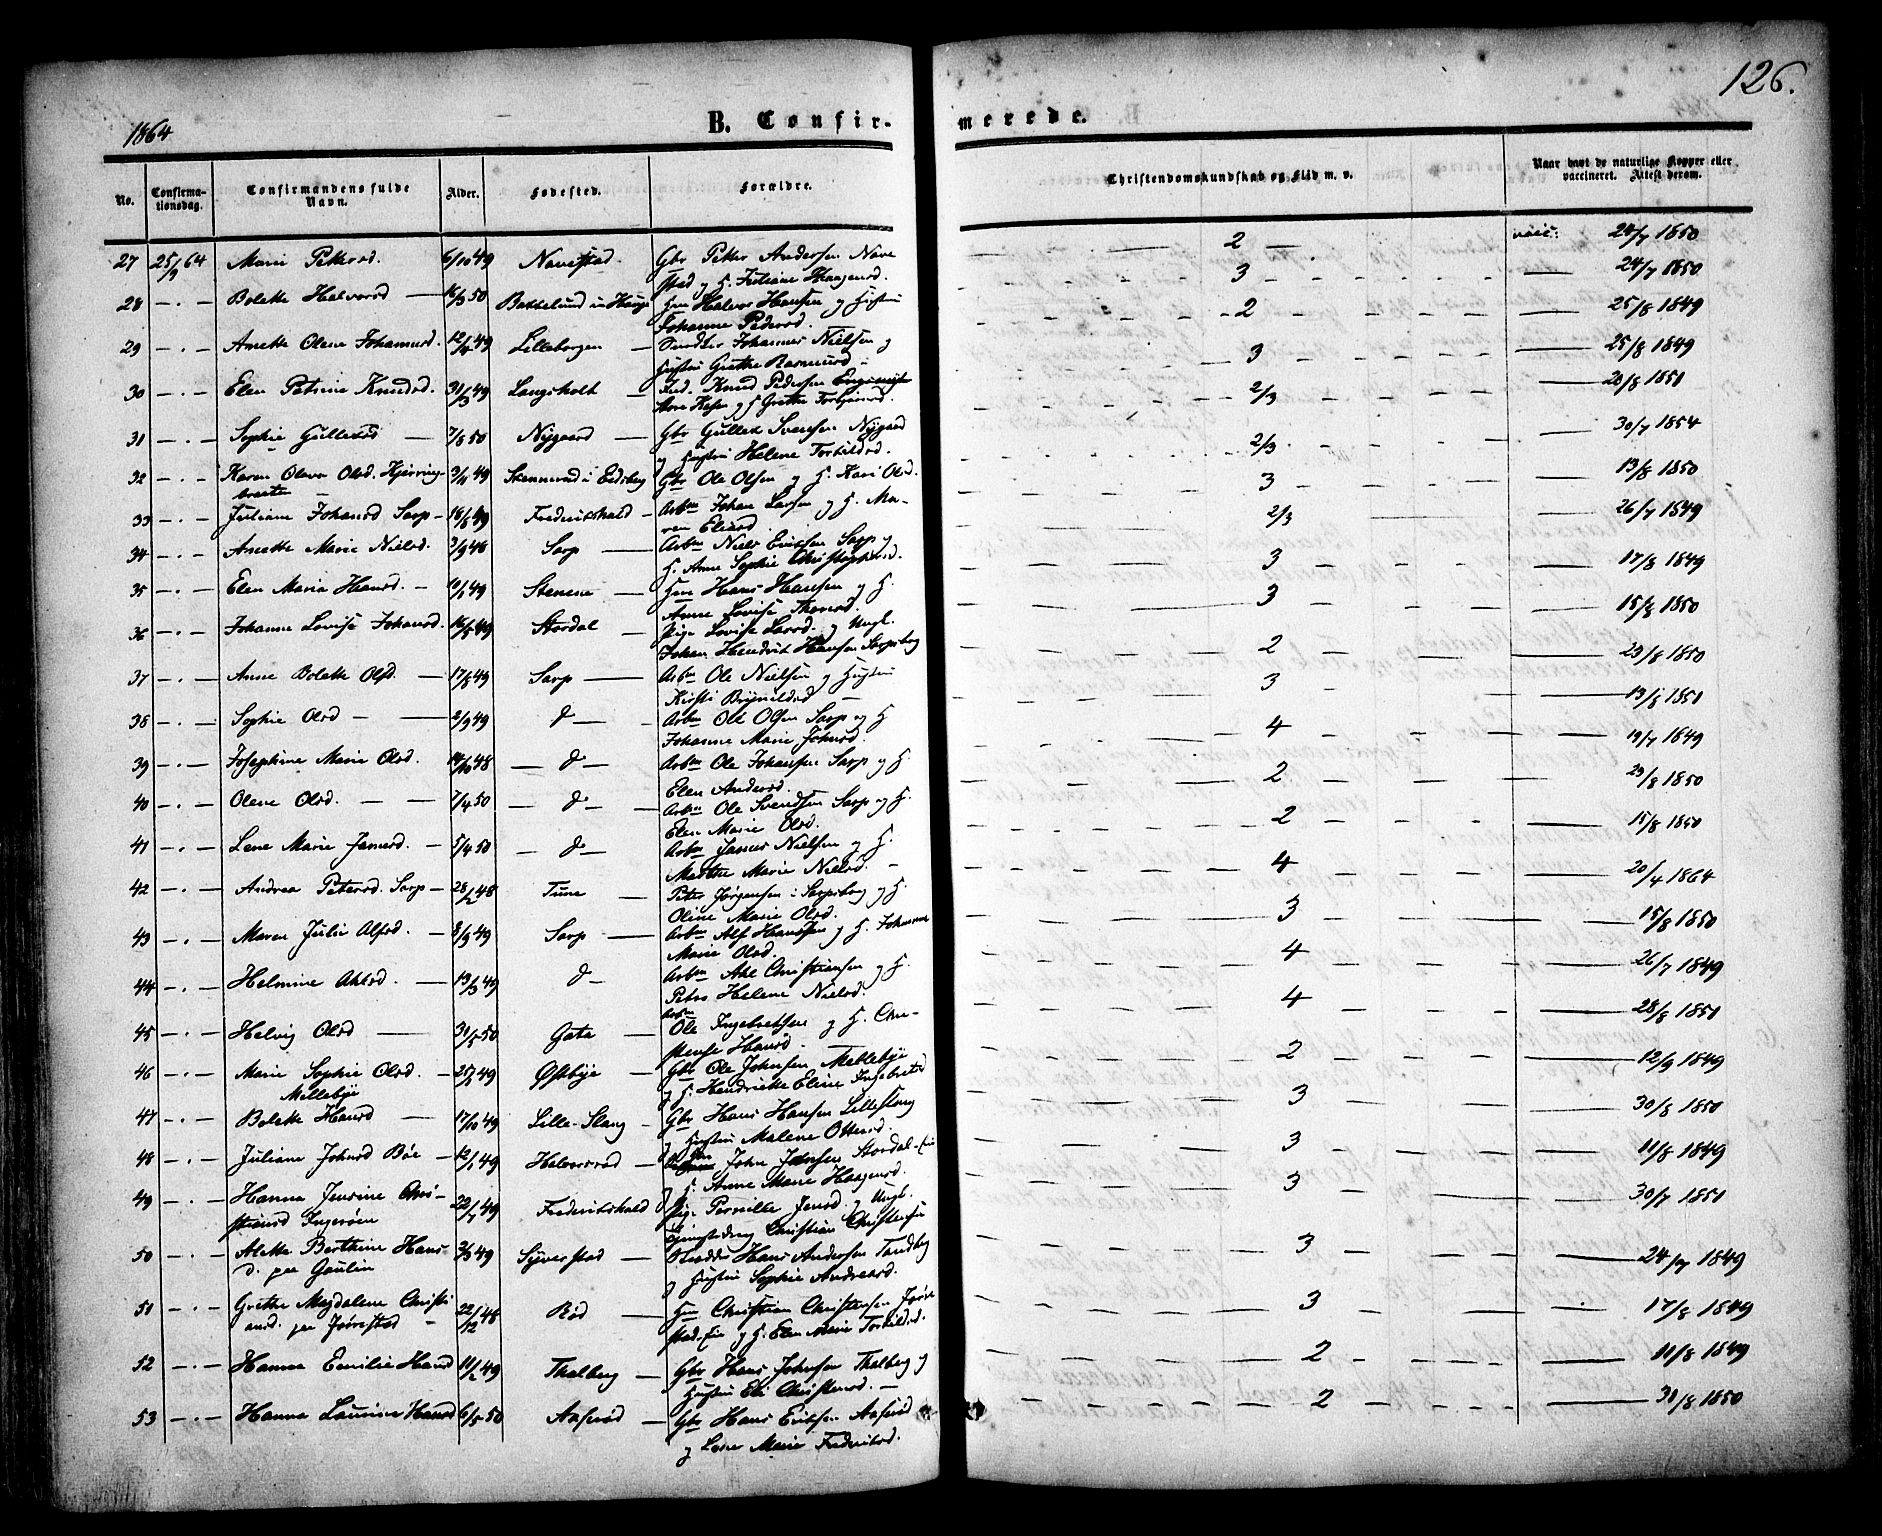 126.
1864
B. Confir- merede.
No. Confirma- tionsdag. Confirmandens fulde Navn. Alder. Fødested. Forældre. Christendomskundskab og Flid m. v. Naar havt de naturlige Kopper eller vaccineret. Attest derom.
27 25/9 64 Marie Pettersd. 6/10 49 Navestad. Gbr Petter Andersen Nave 2 vacc: 24/7 1850
stad og H. Juliane Haagensd.
28 — . — Bolette Halvorsd 50 Hm Halvor Hansen og Hustru 3 24/7 1850
Johanne Pedersd.
29 — . — Anette Olene Johannesd. 49 Lilleborgen Johannes Nielsen og 2 25/8 1849
Hustru Grethe Rasmusd
30 — . — Elen Petrine Knudsd. 31/3 49 Langsholt Knud Pedersen 3 25/8 1849
og H Grethe Torbjørnsd.
31 — . — Sophie Gullexsd 7/8 50 Nygaard Gbr Gullex Svensen Nygaard 2/3 20/8 1851
og Hustru Helene Torkildsd.
32 — . — Karen Oleva Olsd. Hjerring- 3/11 49 Stemmerød i Eidsberg Gbr Ole Olsen og H. Kari Olsd. 2/3 30/7 1854
33 — . — Juliane Johansd Sarp 49 Fredrikshald Arbm Johan Larsen og H. Ma- 3 13/8 1850
ren Eliasd
34 — . — Anette Marie Nielsd. 3/9 48 Sarp Arbm Niels Eriksen Sarp og 2/3 26/7 1849
H. Anne Sophie Christophersd.
35 — . — Elen Maria Hansd. 49 Stenene Hm Hans Hansen og H. 3 17/8 1849
Anne Lovise Thorsd.
36 — . — Johanne Lovise Johansd. 16/5 49 Stordal Pige Lovise Larsd. og Ungk. 3 15/8 1850
Johan Hendrik Hansen Sarpsborg
37 — . — Anne Bolette Olsd. 17/8 49 Sarp Arbm Ole Nielsen og Hustru 2 23/8 1850
Kirsti Brynildsd
38 — . — Sophie Olsd 2/9 49 d Arbm Ole Olsen Sarp og H 3 13/8 1851
Johanne Marie Johnsd.
39 — . — Josephine Marie Olsd. 14/10 48 d Arbm Ole Johansen Sarp og H. 4 19/7 1849
Elen Andersd.
40 — . — Oleve Olsd. 7/4 50 d Arbm Ole Svendsen Sarp og H. 2 23/8 1850
Elen Marie Olsd.
41 — . — Lene Marie Jensd. 5/4 50 d Arbm Nielsen og H. 2 15/8 1850
Marthe Marie Nielsd.
42 — . — Andrea Petersd. Sarp 28/2 48 Tune Peter Jørgensen i Sarpsborg og H. 4 20/4 1864
Oline Marie Olsd.
43 — . — Maren Julie Alfsd. 8/9 49 Sarp Arbm Alf Hansen og H. Johanne 3 15/8 1850
Marie Olsd.
44 — . — Helmine Axelsd. 13/3 49 d Arbm Axel Christiansen og H. 4 26/7 1849
Helene Nielsd.
45 — . — Helvig Olsd 31/5 50 Gata Arbm Ole Ingebretsen og H. Chri- 4 28/8 1851
stense Hansd.
46 — . — Marie Sophie Olsd. 49 Østbye Gbr Ole Johnsen Mellebye 2 12/9 1849
Mellebye og H. Hendriette Eline Ingebretsd
47 — . — Bolette Hansd 17/10 49 Lille-Slang Gbr Hans Hansen Lilleslang 3 30/8 1850
og Hustru Malene Ottersd.
48 — . — Juliane Johnsd Bøe 12/1 49 Halvorsrød Gbr John Jensen Stordal-Eie 3 11/8 1849
og H. Anne Marie Haagensd.
49 — . — Hanna Jensine Chri- 22/7 49 Fredrikshald Pige Pernille Jensd. og Ungk. 3 30/7 1851
stiansd Ingerøen Christian Christensen
50 — . — Alette Berthine Hans- 49 Syverstad Hans Andersen Tandberg 3 24/7 1849
d. paa Gaulin og Hustru Sophie Andreasd.
51 — . — Grethe Magdalene Christi 22/2 48 Rød Hm Christian Christensen Jøre 3 17/8 1849
ansd. paa Jørestad stad-Eie og H. Elen Marie Torkildsd.
52 — . — Hanna Emilie Hansd 11/2 49 Thalberg Gbr Hans Johnsen Thalberg og 2 11/8 1849
Hustru Eli Christensd.
53 — . — Hanna Laurine Hansd 6/5 50 Aaserød Gbr Hans Eriksen Aaserød 2 31/8 1850
og Lene Marie Frederiksd.